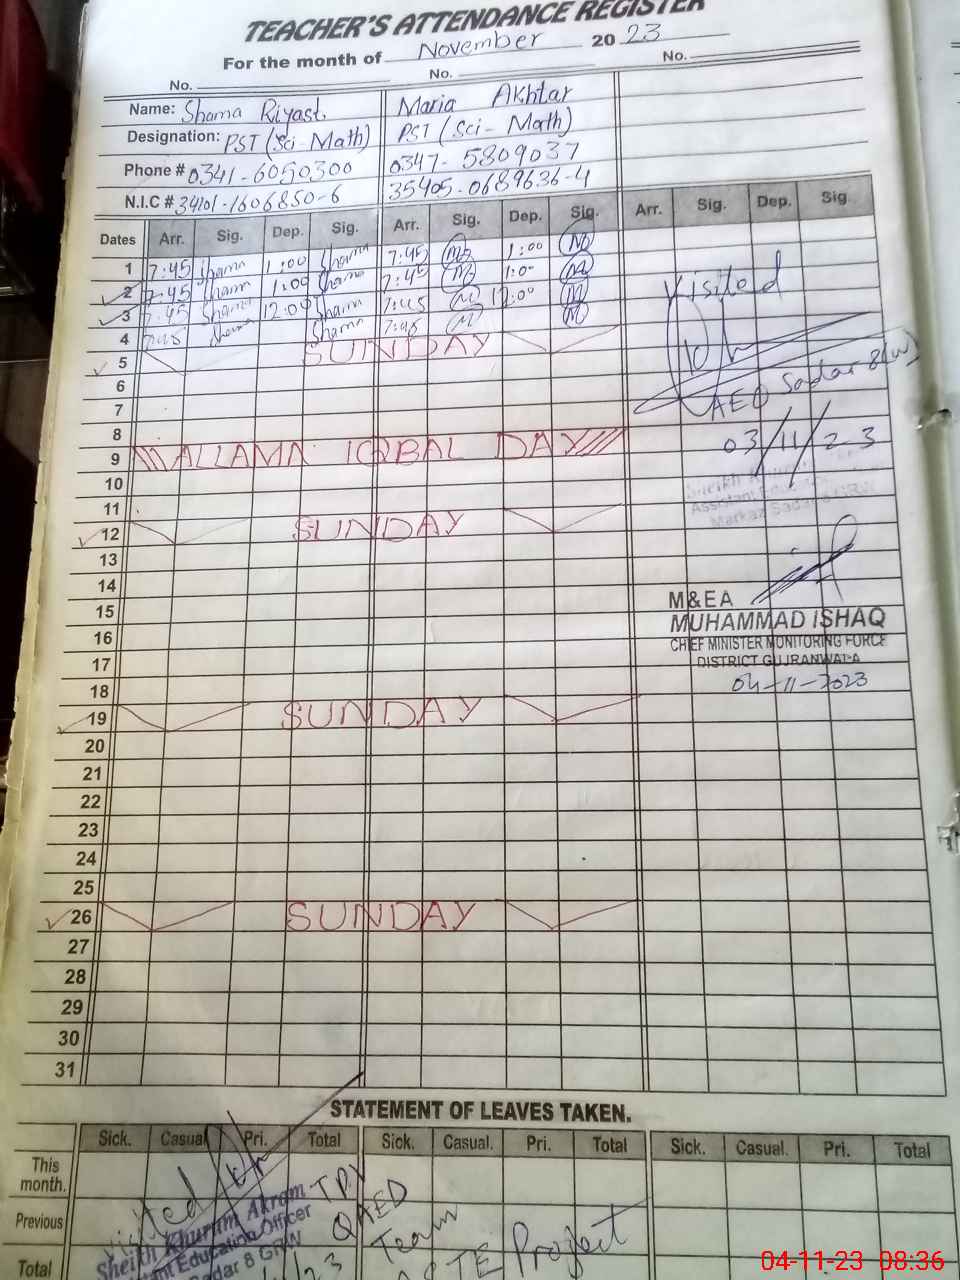 TEACHER'S ATTENDANCE REGISTER
For the month of November 2023
No. No. No.
Name: Shama Riyast. Maria Akhtar
Designation: PST (Sci-Math) PST (Sci-Math)
Phone # 0341-6050300 0347-5809037
N.I.C # 34101-1606850-6 35405-0689636-4
Dates Arr. Sig. Dep. Sig. Arr. Sig. Dep. Sig. Arr. Sig. Dep. Sig.
1 7:45 Shama 1:00 Shama 7:45 1:00
2 7:45 Shama 1:00 Shama 7:45 1:00
3 7:45 Shama 12:00 Shama 7:45 12:00
4 7:45 Shama Shama 7:45
Visited
5 SUNDAY
6
AEO Sadar 8(W)
7
8
03/11/23
9 ALLAMA IQBAL DAY
10
Sheikh
Assistant Education
Markaz Sadar 8 GRW
11
12 SUNDAY
13
14
M&EA
15
MUHAMMAD ISHAQ
16
CHIEF MINISTER MONITORING FORCE
17
DISTRICT GUJRANWALA
18
04-11-2023
19 SUNDAY
20
21
22
23
24
25
26 SUNDAY
27
28
29
30
31
STATEMENT OF LEAVES TAKEN.
Sick. Casual Pri. Total Sick. Casual. Pri. Total Sick. Casual. Pri. Total
This month.
Previous
Total
Visited
Sheikh Khuram Akram
Education Officer
Sadar 8 GRW
QAED
Team
Project
04-11-23 08:36